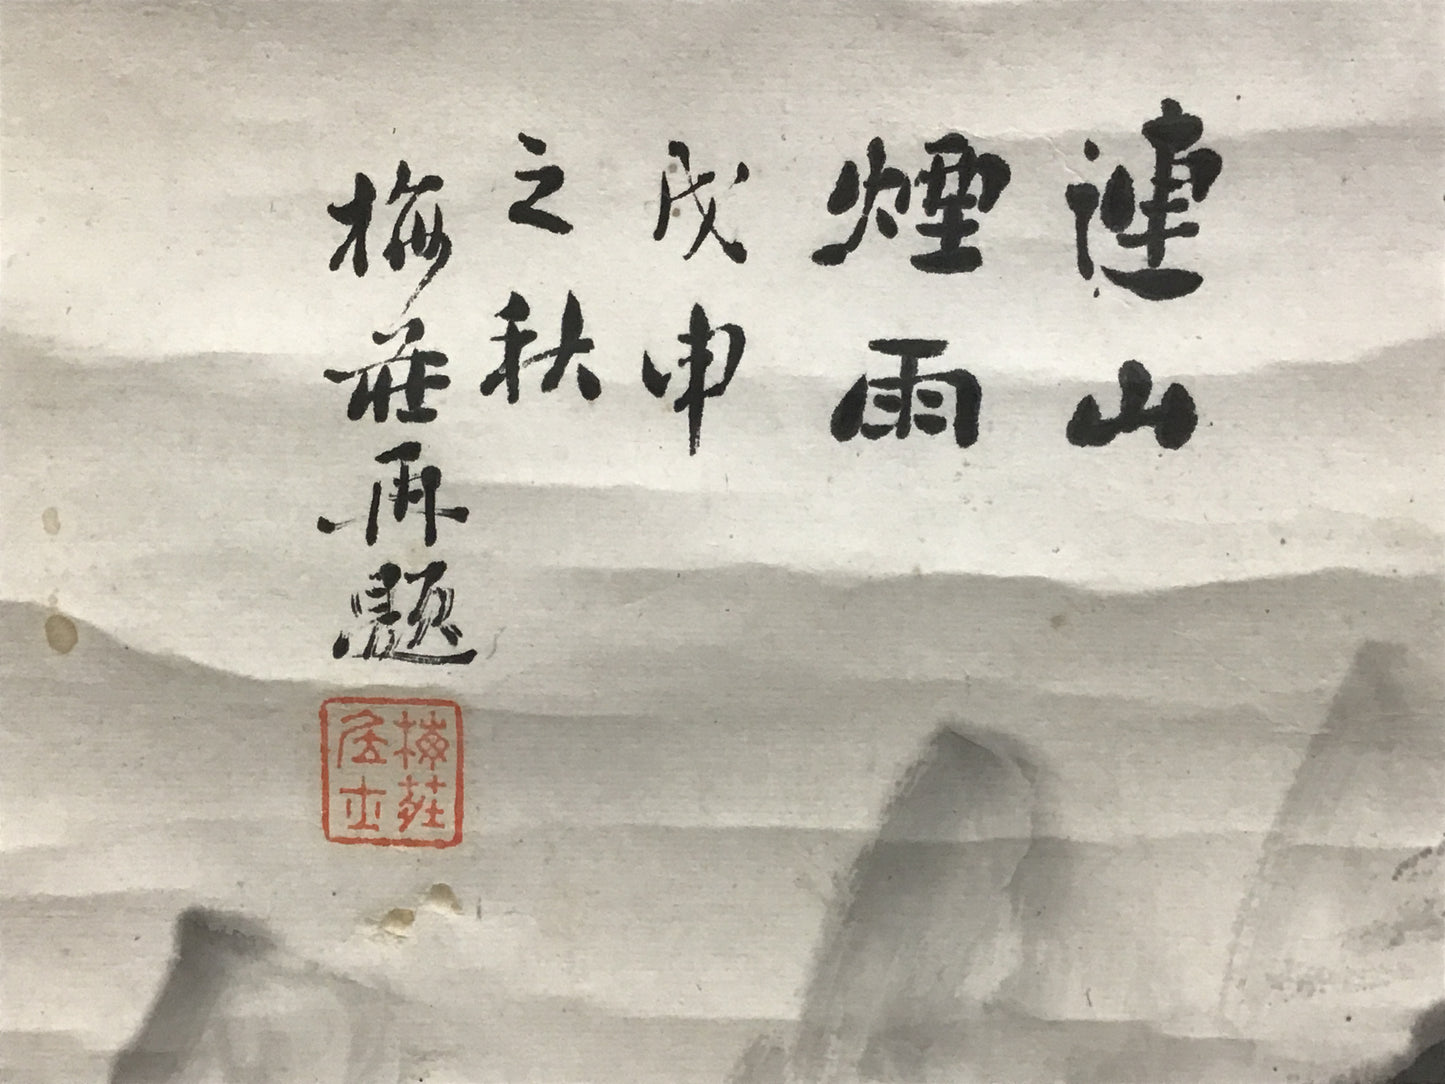 連山
煙雨
戊申
之秋
梅莊再題
梅莊
居士